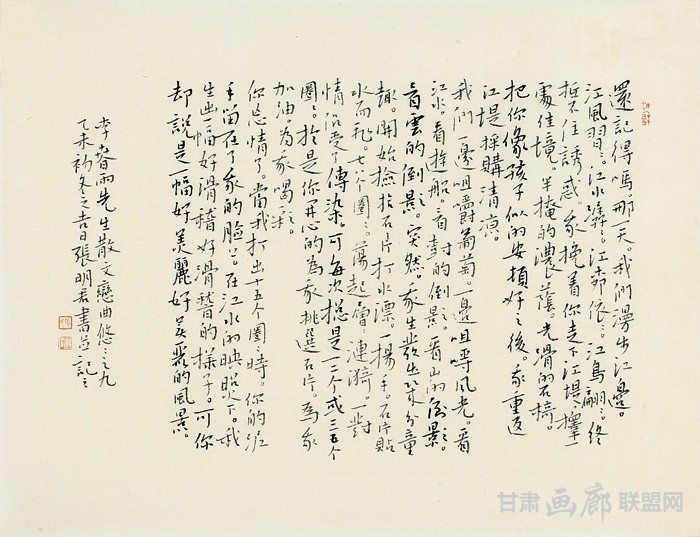 還記得嗎那一天。我們漫步江邊。
江風習〻。江水漾〻。江草依〻。江鳥翩〻。終
抵不住誘惑。我挽着你走下江堤。擇一
處佳境。半掩的濃蔭。光滑的石椅。
把你像孩子似的安頓好之後。我重返
江堤採購清涼。
我們一邊咀嚼葡萄。一邊咀嚼風光。看
江水。看遊船。看對的倒影。看山的倒影。
看雲的倒影。突然。我生發出幾分童
趣。開始撿拾石片打水漂。一揚手。石片貼
水而飛。七八个圈〻。蕩起層〻漣漪。一對
情侶受了傳染。可每次總是一二个或三五个
圈〻。於是你開心的為我挑選石片。為我
加油。為我喝彩。
你忘情了。當我打出十五个圈〻時。你的泥
手留在了我的臉上。在江水的映照下。我
生出一幅好滑稽好滑稽的樣子。可你
却說是一幅好美麗好美麗的風景。
李春雨先生散文戀曲悠〻之九
乙未初冬之吉日張明君書并記之
甘肃画廊联盟网